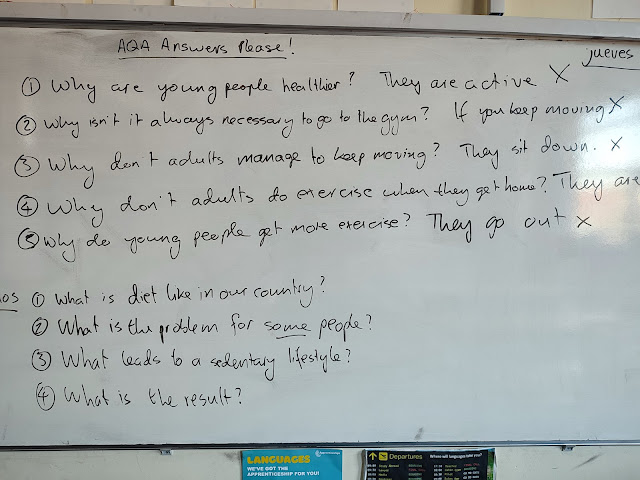 AQA Answers Please!
jueves
① Why are young people healthier? They are active X
② Why isn't it always necessary to go to the gym? If you keep moving X
③ Why don't adults manage to keep moving? They sit down. X
④ Why don't adults do exercise when they get home? They are
⑤ Why do young people get more exercise? They go out X
① What is diet like in our country?
② What is the problem for some people?
③ What leads to a sedentary lifestyle?
④ What is the result?
LANGUAGES
WE'VE GOT THE
APPRENTICESHIP FOR YOU!
Departures
Where will languages take you?